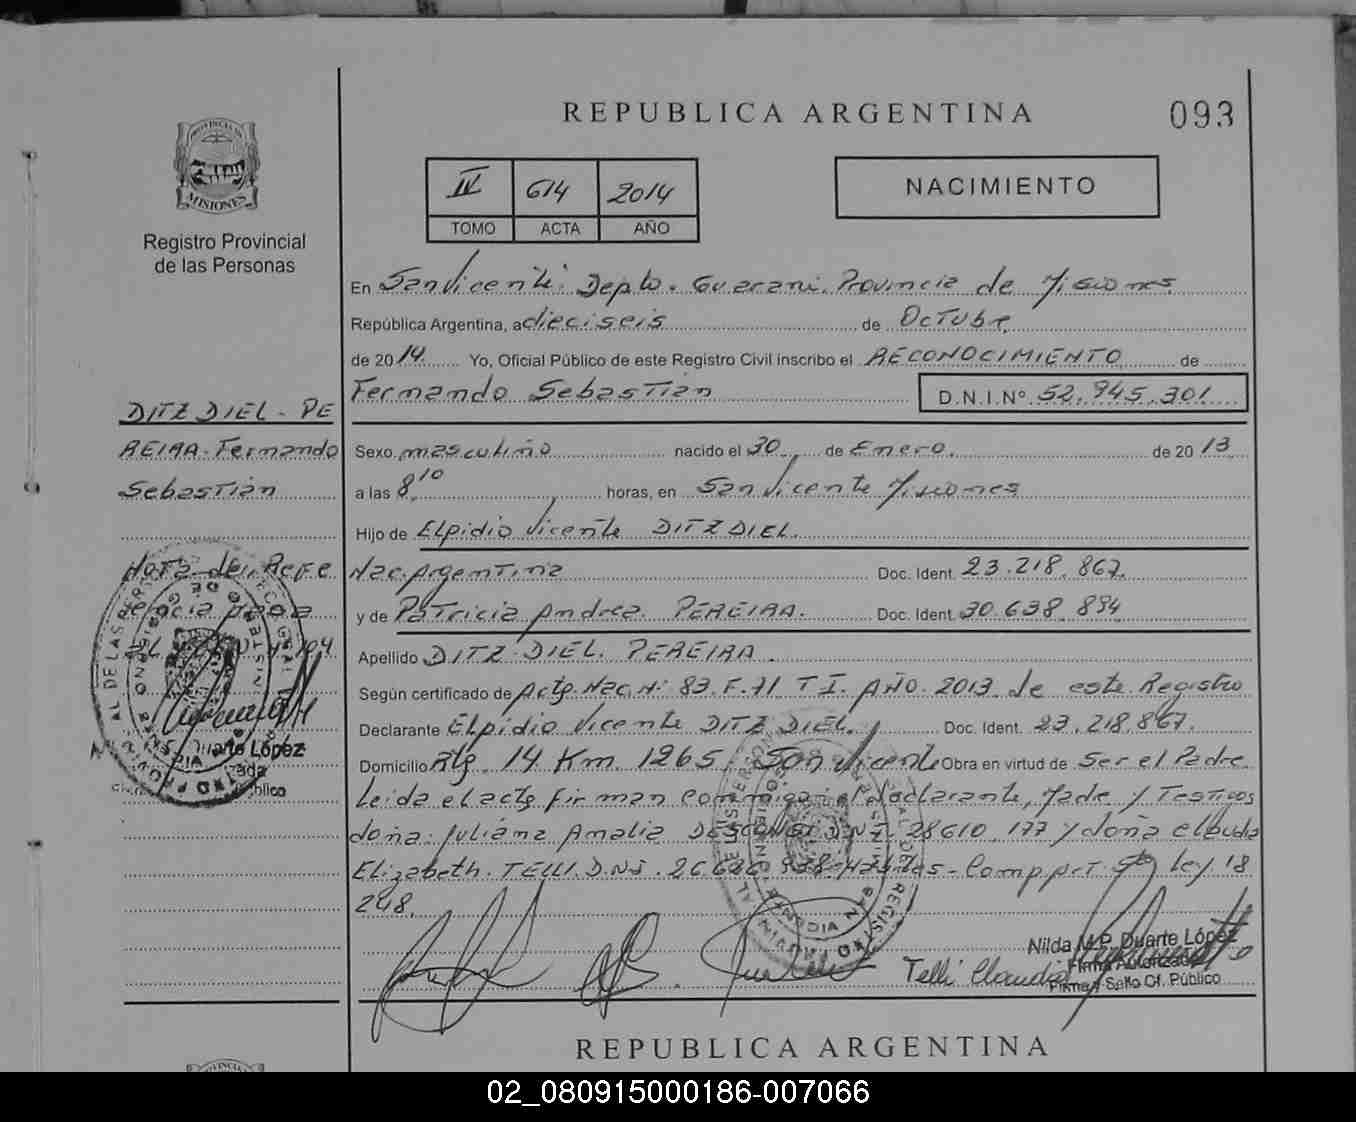 REPUBLICA ARGENTINA
093
PROVINCIA DE
MISIONES
Registro Provincial
de las Personas
IV 614 2014
TOMO ACTA AÑO
NACIMIENTO
En San Vicente. Depto. Guarani. Provincia de Misiones
República Argentina, a dieciseis de Octubre
de 2014 Yo, Oficial Público de este Registro Civil inscribo el RECONOCIMIENTO de
Fernando Sebastián D.N.I.Nº 52.945.301
DITZ DIEL - PE
REIRA - Fernando
Sebastián
Sexo masculino nacido el 30 de Enero de 2013
a las 8,10 horas, en San Vicente Misiones
Hijo de Elpidio Vicente DITZ DIEL.
Nac. Argentina Doc. Ident. 23.218.867.
y de Patricia Andrea PEREIRA. Doc. Ident. 30.638.894
Apellido DITZ DIEL PEREIRA.
Según certificado de Acta Nac. Nº 83. F. 71 T I. AÑO. 2013 de este Registro
Declarante Elpidio Vicente DITZ DIEL. Doc. Ident. 23.218.867.
Domicilio Rta. 14 Km 1265 San Vicente Obra en virtud de Ser el Padre
Leida el acta firman conmigo el declarante, Madre y Testigos
doña Juliana Amalia D.N.I. 28610.177 y doña Claudia
Elizabeth TELLI. D.N.I. Ley 18
248.
Nota de Refe
rencia
Duarte López
Telli Claudia
Nilda M.P. Duarte López
Firma Autorizada
Firma y Sello Of. Público
REPUBLICA ARGENTINA
02_080915000186-007066